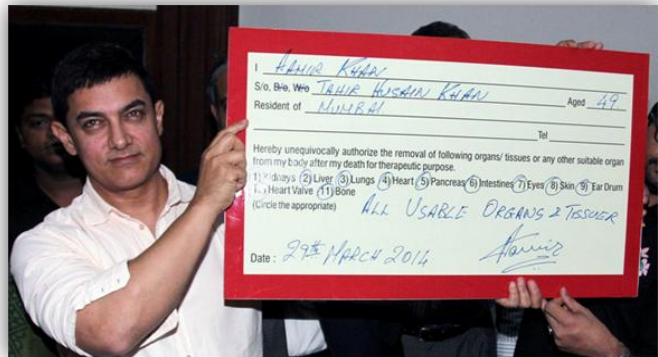 I AAMIR KHAN
S/o, D/o, W/o TAHIR HUSAIN KHAN Aged 49
Resident of MUMBAI
Tel
Hereby unequivocally authorize the removal of following organs/ tissues or any other suitable organ
from my body after my death for therapeutic purpose.
1) Kidneys 2) Liver 3) Lungs 4) Heart 5) Pancreas 6) Intestines 7) Eyes 8) Skin 9) Ear Drum
Heart Valve 11) Bone
(Circle the appropriate) ALL USABLE ORGANS & TISSUES
Date : 29th MARCH 2014